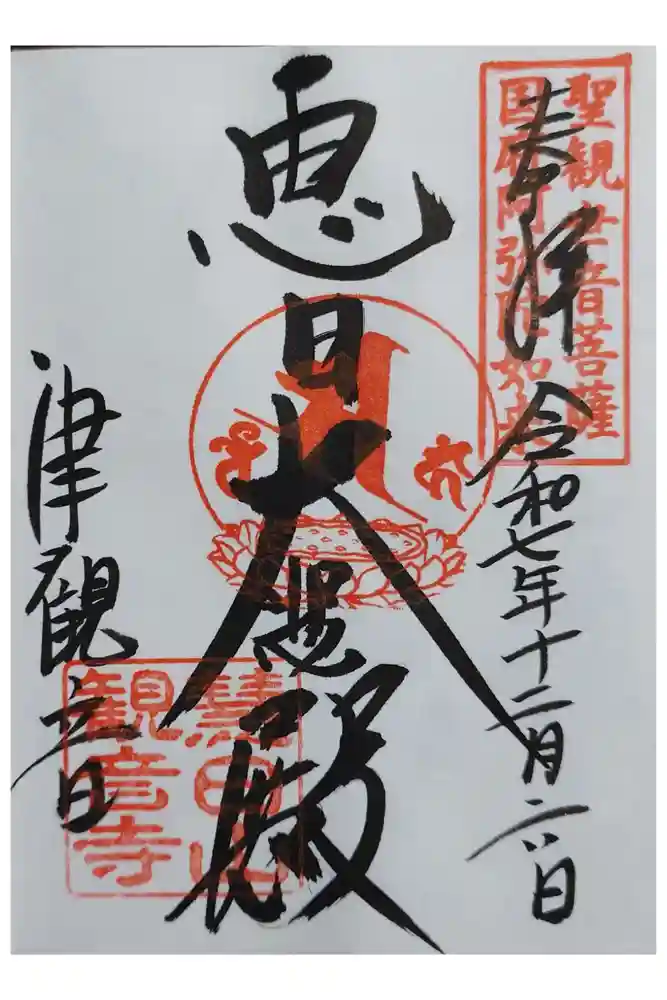 聖観世音菩薩
国府阿弥陀如来
奉拝
令和七年十二月二八日
恵日大悲殿
津観音
慧日山
観音寺